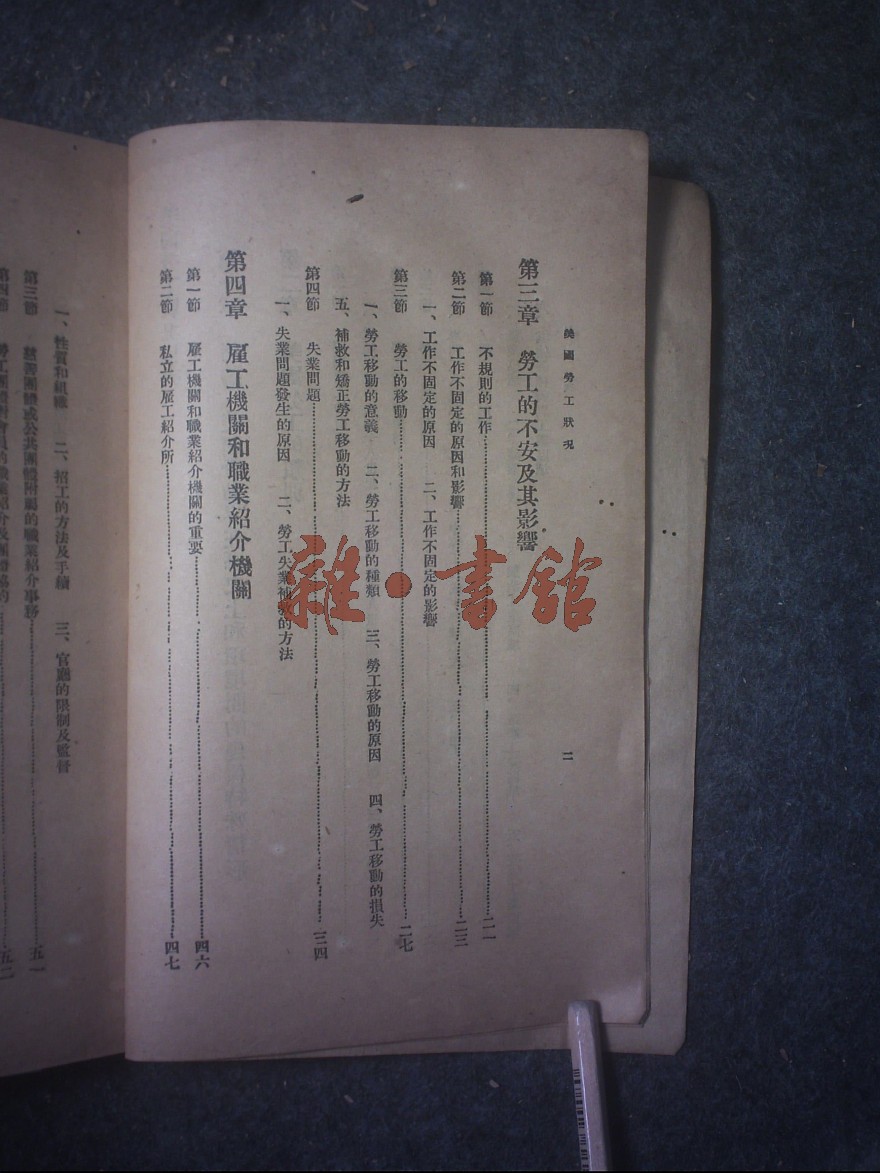 美國勞工狀況
二
第三章 勞工的不安及其影響
第一節 不規則的工作……二一
第二節 工作不固定的原因和影響……二三
一、工作不固定的原因 二、工作不固定的影響
第三節 勞工的移動……二七
一、勞工移動的意義 二、勞工移動的種類 三、勞工移動的原因 四、勞工移動的損失
五、補救和矯正勞工移動的方法
第四節 失業問題……三四
一、失業問題發生的原因 二、勞工失業補救的方法
第四章 雇工機關和職業紹介機關
第一節 雇工機關和職業紹介機關的重要……四六
第二節 私立的雇工紹介所……四七
一、性質和組織 二、招工的方法及手續 三、官廳的限制及監督
第三節 慈善團體或公共團體附屬的職業紹介事務……五一
第四節 勞工團體對會員的職業紹介及……五二
雜·書館